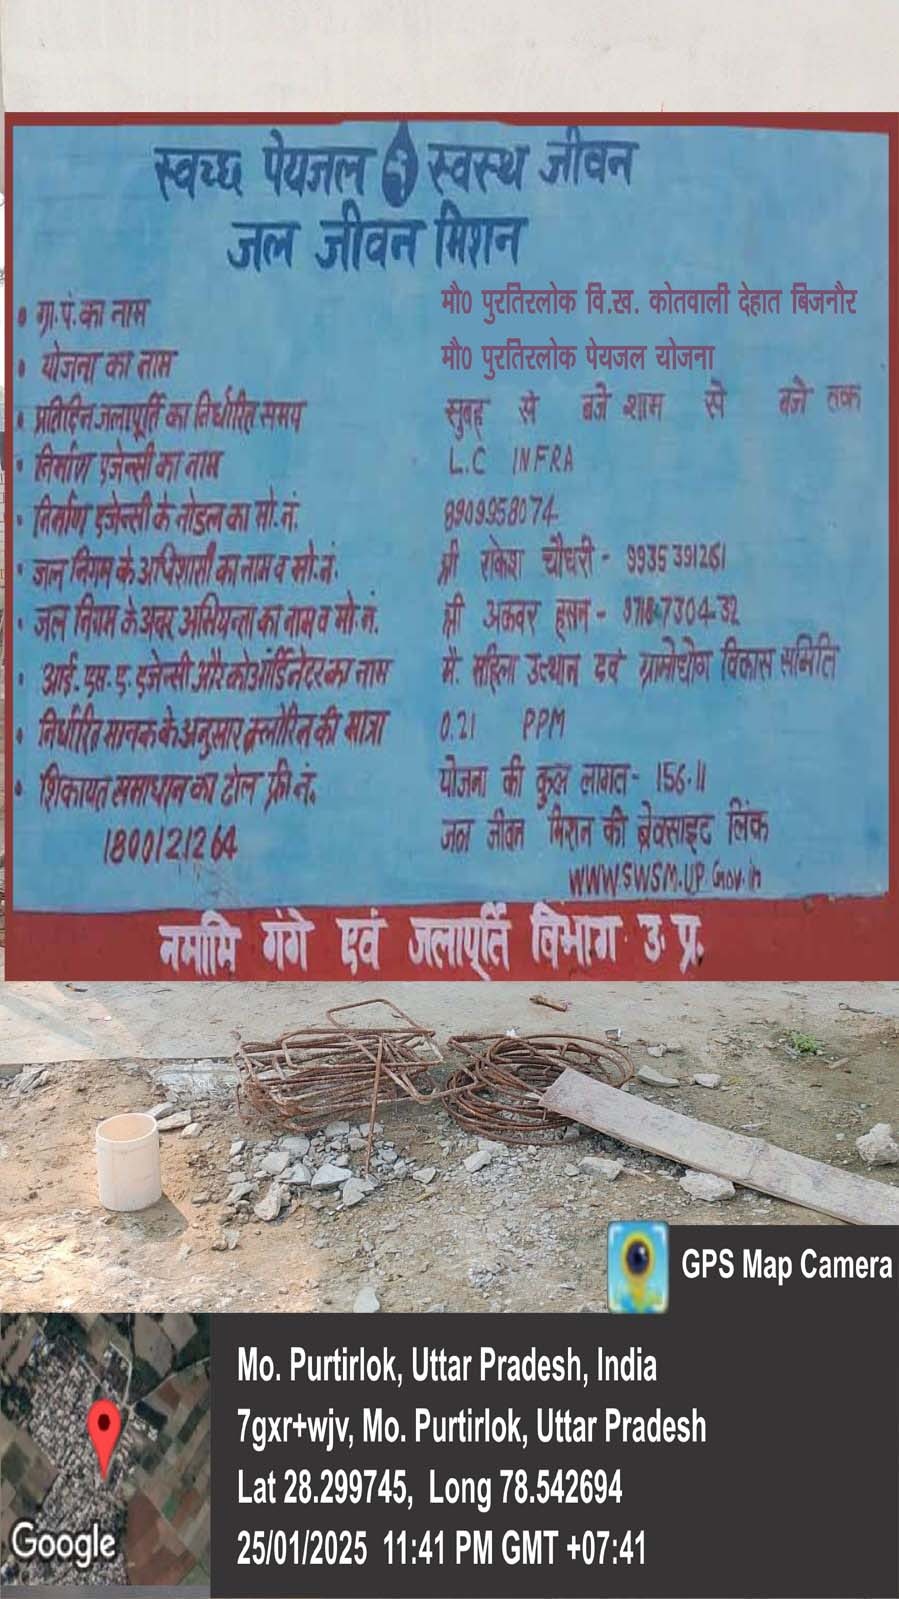 स्वच्छ पेयजल स्वस्थ जीवन
जल जीवन मिशन
ग्रा.पं. का नाम मौ0 पुरतिरलोक वि.ख. कोतवाली देहात बिजनौर
योजना का नाम मौ0 पुरतिरलोक पेयजल योजना
प्रतिदिन जलापूर्ति का निर्धारित समय सुबह से बजे शाम से बजे तक
निर्माण एजेन्सी का नाम L.C INFRA
निर्माण एजेन्सी के नोडल का मो.नं. 8909958074
जल निगम के अधिशासी का नाम व मो.नं. श्री राकेश चौधरी - 9935391261
जल निगम के अवर अभियन्ता का नाम व मो.नं. श्री अकवर हसन -
आई.एस.ए. एजेन्सी और कोऑर्डिनेटर का नाम मै. महिला उत्थान एवं ग्रामोद्योग विकास समिति
निर्धारित मानक के अनुसार क्लोरिन की मात्रा 0.21 PPM
शिकायत समाधान का टोल फ्री नं. योजना की कुल लागत - 156.11
1800121264 जल जीवन मिशन की बेवसाइट लिंक
WWW.SWSM.UP.Gov.in
नमामि गंगे एवं जलापूर्ति विभाग उ. प्र.
GPS Map Camera
Mo. Purtirlok, Uttar Pradesh, India
7gxr+wjv, Mo. Purtirlok, Uttar Pradesh
Lat 28.299745, Long 78.542694
25/01/2025 11:41 PM GMT +07:41
Google